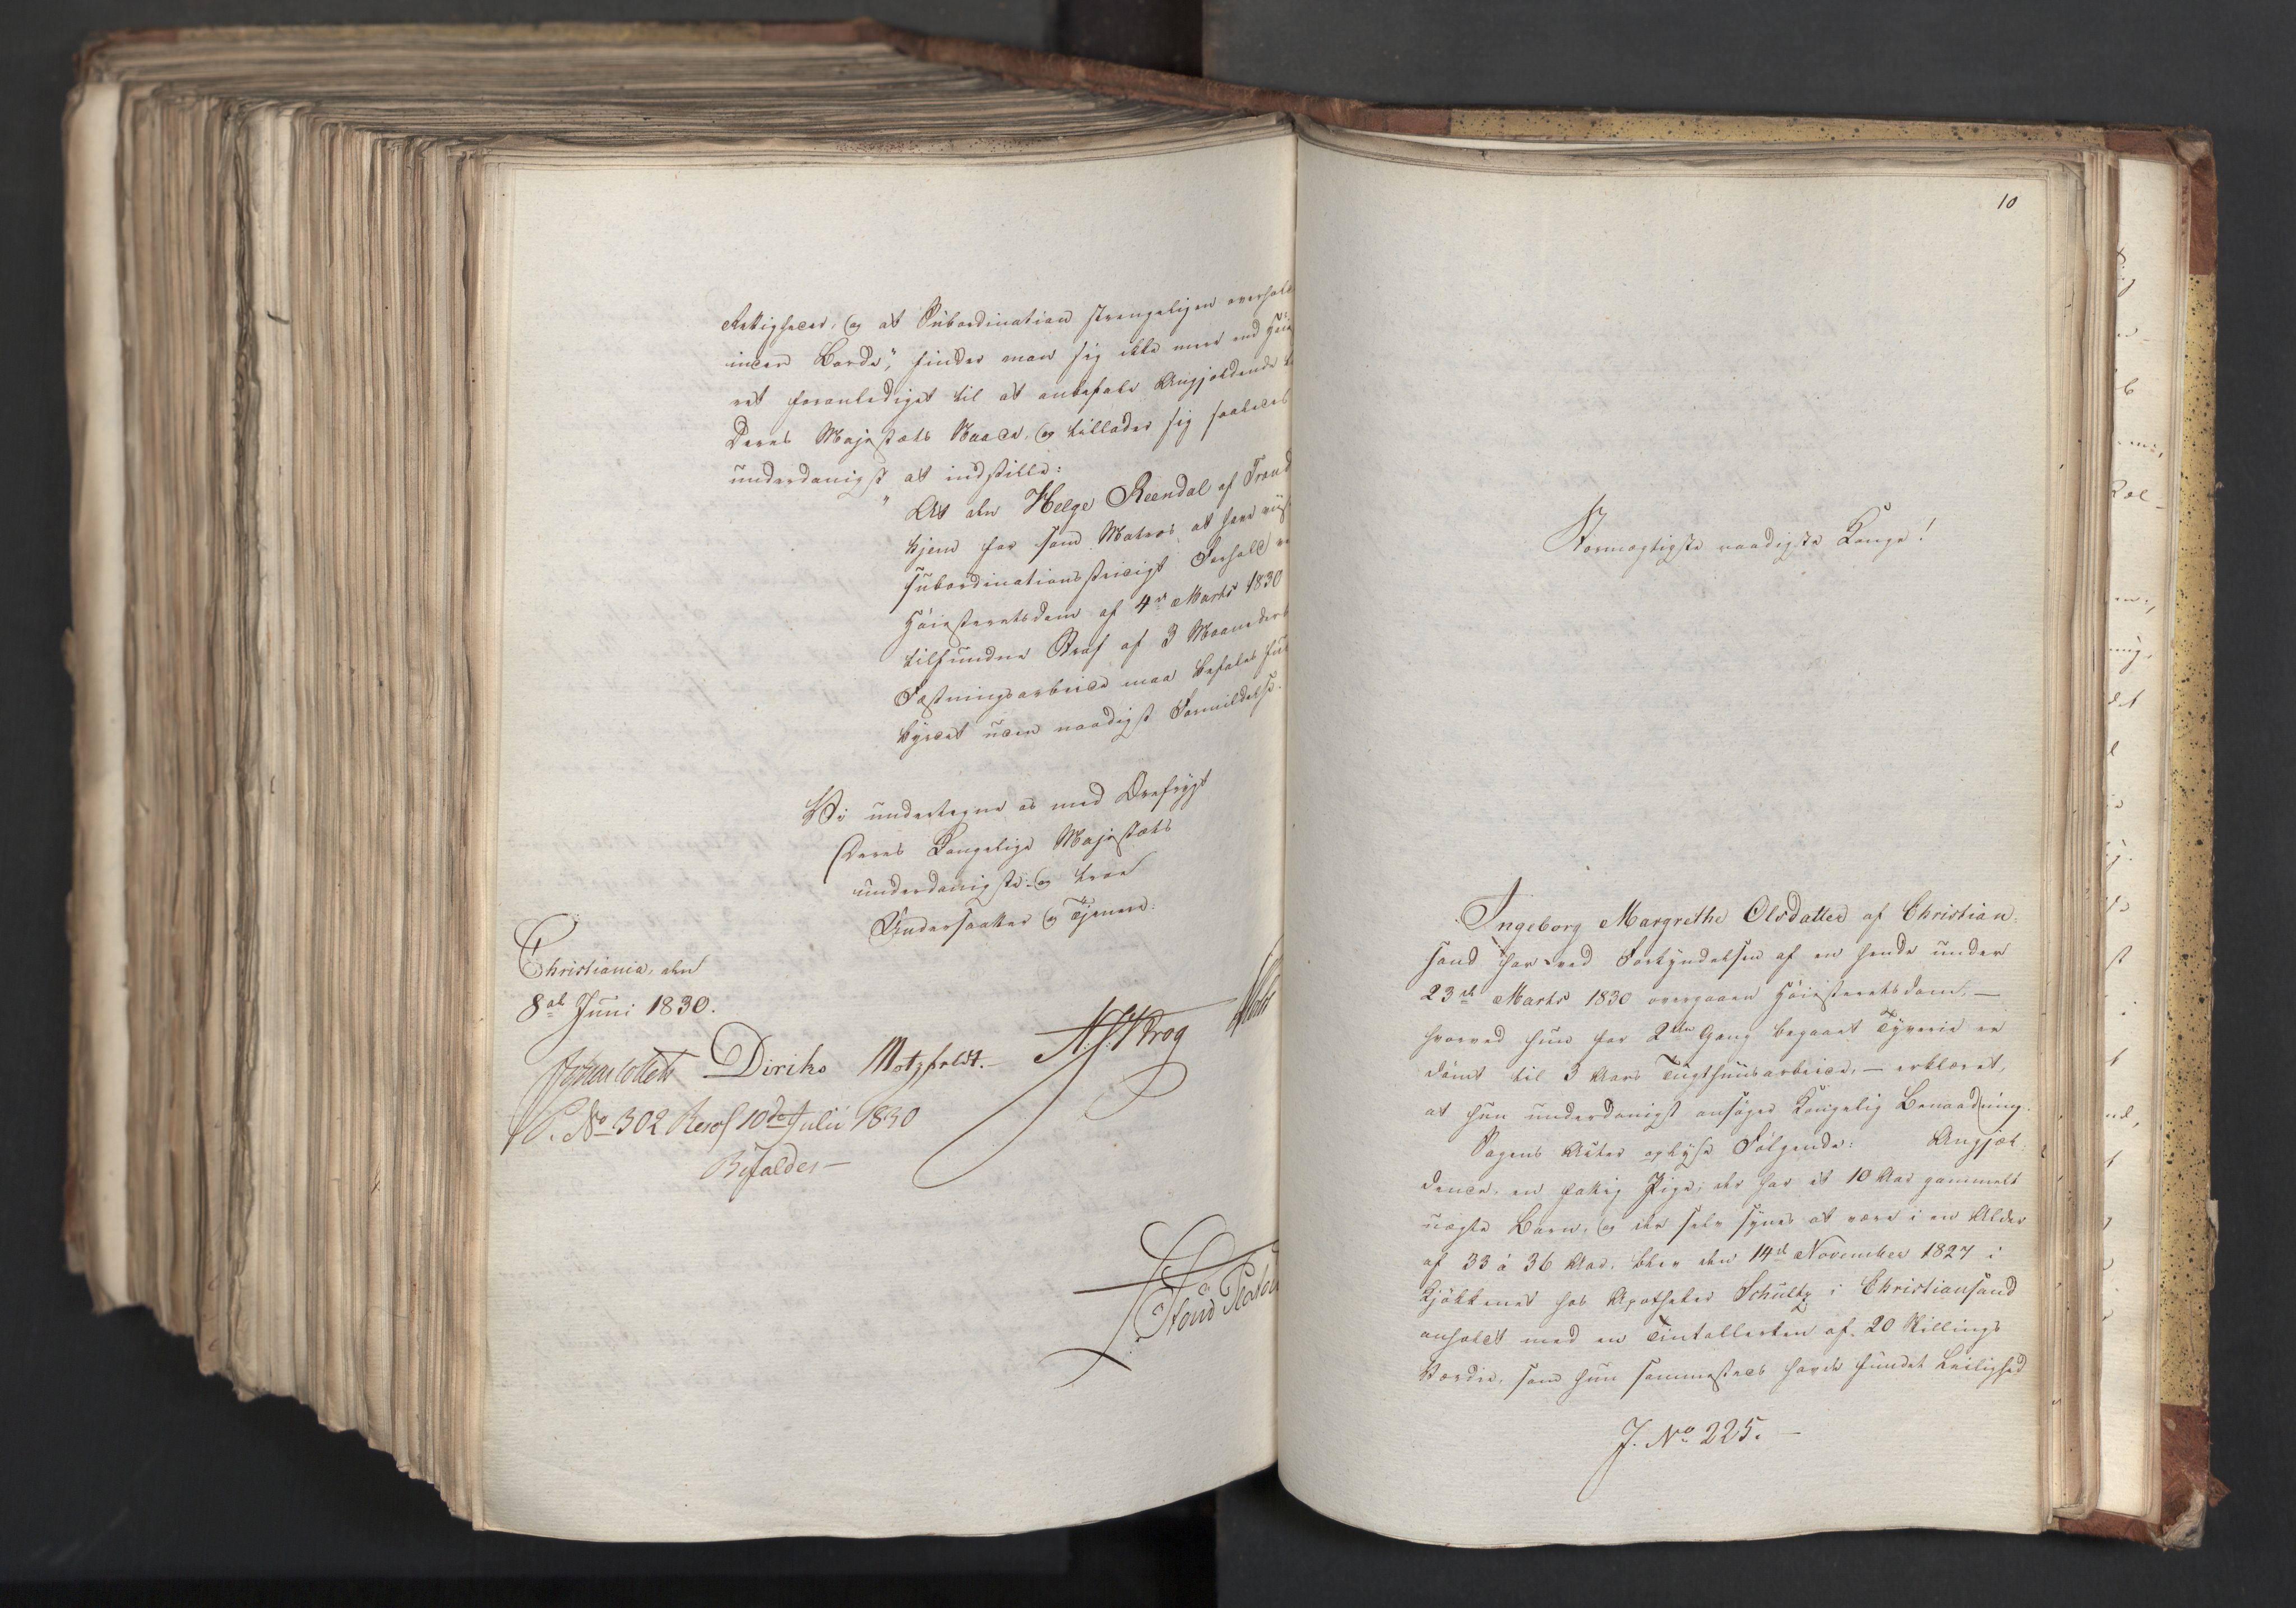 Rettigheder, og at Subordination strengeligen overhol
inden Borde", finder man sig ikke meer end Høie
ret foranlediget til at anbefale Angjeldende t
Deres Majestæts Naade, og tillader sig saaledes
underdanigst at indstille:
" At den Helge Reendal af Trond
hjem for som Matros at have viis
subordinationsstridigt Forhold ve
Høiesteretsdom af 4de Marts 1830
tilfundne Straf af 3 Maaneders
Fæstningsarbeide maa befales ful
byrdet uden naadigst Formildelse.
Vi undertegne os med Ærefrygt
Deres Kongelige Majestæts
underdanigste og troe
Undersaatter og Tjenere:
Christiania, den
8de Juni 1830.
Diriks Motzfeldt. Krog
P. No 302 Resol 10de Julii 1830
Bifaldes —
10
Stormægtigste naadigste Konge!
Ingeborg Margrethe Olsdatter af Christian-
sand har ved Forkyndelsen af en hende under
23de Marts 1830 overgaaen Høiesteretsdom, —
hvorved hun for 2den Gang begaaet Tyverie er
dømt til 3 Aars Tugthuusarbeide, — erklæret,
at hun underdanigst ansøger Kongelig Benaadning.
Sagens Akter oplyse Følgende: Angjæl-
dende, en fattig Pige, der har et 10 Aar gammelt
uægte Barn, og der selv synes at være i en Alder
af 33 à 36 Aar, blev den 14de November 1827 i
Kjøkkenet hos Apotheker Schultz i Christiansand
anholdt med en Tintallerken af 20 Skillings
Værdie, som hun sammesteds havde fundet Leilighed
J. No 225. —